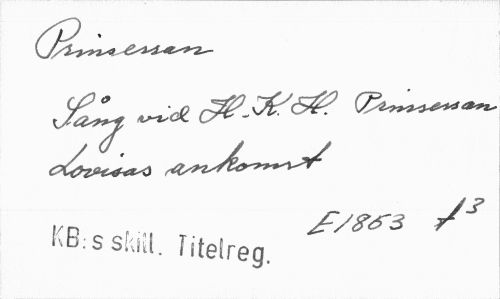 Prinsessan
Sång vid H. K. H. Prinsessan
Lovisas ankomst
E1863 f3
KB:s skill. Titelreg.